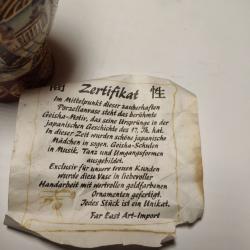 高 性
Zertifikat
Im Mittelpunkt dieser zauberhaften
Porzellanvase steht das berühmte
Geisha-Motiv, das seine Ursprünge in der
japanischen Geschichte des 17. Jh. hat.
In dieser Zeit wurden schöne japanische
Mädchen in sogen. Geisha-Schulen
in Musik, Tanz und Umgangsformen
ausgebildet.
Exclusiv für unsere treuen Kunden
wurde diese Vase in liebevoller
Handarbeit mit wertvollen goldfarbenen
Ornamenten gefertigt.
Jedes Stück ist ein Unikat.
Far East Art-Import